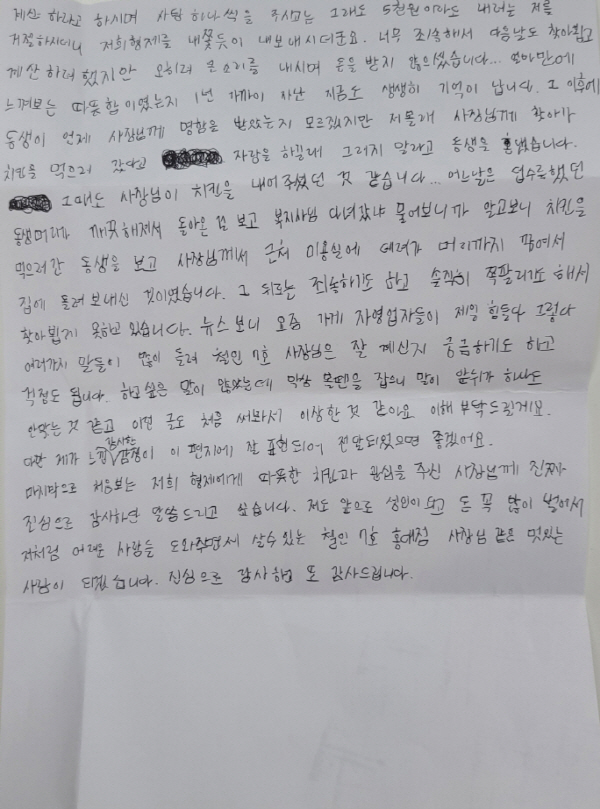 계산 하라고 하시며 사탕 하나씩을 주시고는 그래도 5천원이라도 내려는 저를
거절하시더니 저희형제를 내쫓듯이 내보내시더군요. 너무 죄송해서 다음날도 찾아뵙고
계산 하려 했지만 오히려 큰소리를 내시며 돈을 받지 않으셨습니다... 얼마만에
느껴보는 따뜻함이였는지 1년 가까이 지난 지금도 생생히 기억이 납니다. 그 이후에
동생이 언제 사장님께 명함을 받았는지 모르겠지만 저몰래 사장님께 찾아가
치킨을 먹으러 갔다고 자랑을 하길래 그러지 말라고 동생을 혼냈습니다.
그때도 사장님이 치킨을 내어 주셨던 것 같습니다... 어느날은 덥수룩했던
동생머리가 깨끗해져서 돌아온 걸 보고 복지사님 다녀갔냐 물어보니까 알고보니 치킨을
먹으러간 동생을 보고 사장님께서 근처 미용실에 데려가 머리까지 깎여서
집에 돌려보내신 것이였습니다. 그 뒤로는 죄송하기도 하고 솔직히 쪽팔리기도 해서
찾아뵙지 못하고 있습니다. 뉴스보니 요즘 가게 자영업자들이 제일 힘들다 그렇다
여러가지 말들이 많이 들려 철인 7호 사장님은 잘 계신지 궁금하기도 하고
걱정도 됩니다. 하고싶은 말이 많았는데 막상 볼펜을 잡으니 말이 앞뒤가 하나도
안맞는 것 같고 이런 글도 처음 써봐서 이상한 것 같아요 이해 부탁드릴게요.
다만 제가 느낀 감사한 감정이 이 편지에 잘 표현되어 전달되었으면 좋겠어요.
마지막으로 처음보는 저희 형제에게 따뜻한 치킨과 관심을 주신 사장님께 진짜
진심으로 감사하단 말씀 드리고 싶습니다. 저도 앞으로 성인이 되고 돈 꼭 많이 벌어서
저처럼 어려운 사람들 도와주면서 살수 있는 철인 7호 홍대점 사장님 같은 멋있는
사람이 되겠습니다. 진심으로 감사하고 또 감사드립니다.